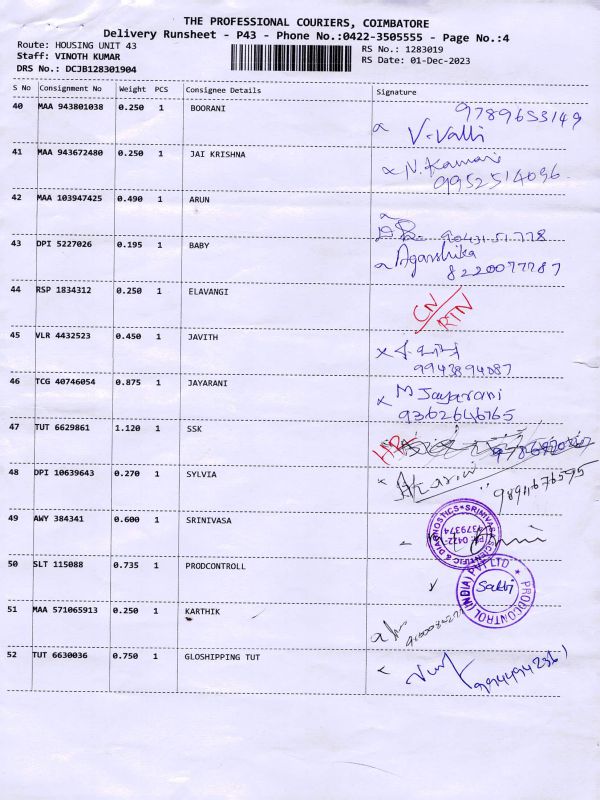 THE PROFESSIONAL COURIERS, COIMBATORE
Delivery Runsheet - P43 - Phone No.:0422-3505555 - Page No.:4
Route: HOUSING UNIT 43 RS No.: 1283019
Staff: VINOTH KUMAR RS Date: 01-Dec-2023
DRS No.: DCJB128301904
S No Consignment No Weight PCS Consignee Details Signature
40 MAA 943801038 0.250 1 BOORANI 9789653149
V-Valli
41 MAA 943672480 0.250 1 JAI KRISHNA N. Kamari
9952514036
42 MAA 103947425 0.490 1 ARUN
9043151778
43 DPI 5227026 0.195 1 BABY Agarshika
8220077787
44 RSP 1834312 0.250 1 ELAVANGI CN/RTN
45 VLR 4432523 0.450 1 JAVITH
9943894087
46 TCG 40746054 0.875 1 JAYARANI M Jayarani
9362646765
47 TUT 6629861 1.120 1 SSK
48 DPI 10639643 0.270 1 SYLVIA
49 AWY 384341 0.600 1 SRINIVASA
SRINIVASA SCIENTIFIC & DIAGNOSTICS
PH: 0422-4379374
50 SLT 115088 0.735 1 PRODCONTROLL
PRODCONTROL (INDIA) PVT LTD
Sakthi
51 MAA 571065913 0.250 1 KARTHIK
52 TUT 6630036 0.750 1 GLOSHIPPING TUT